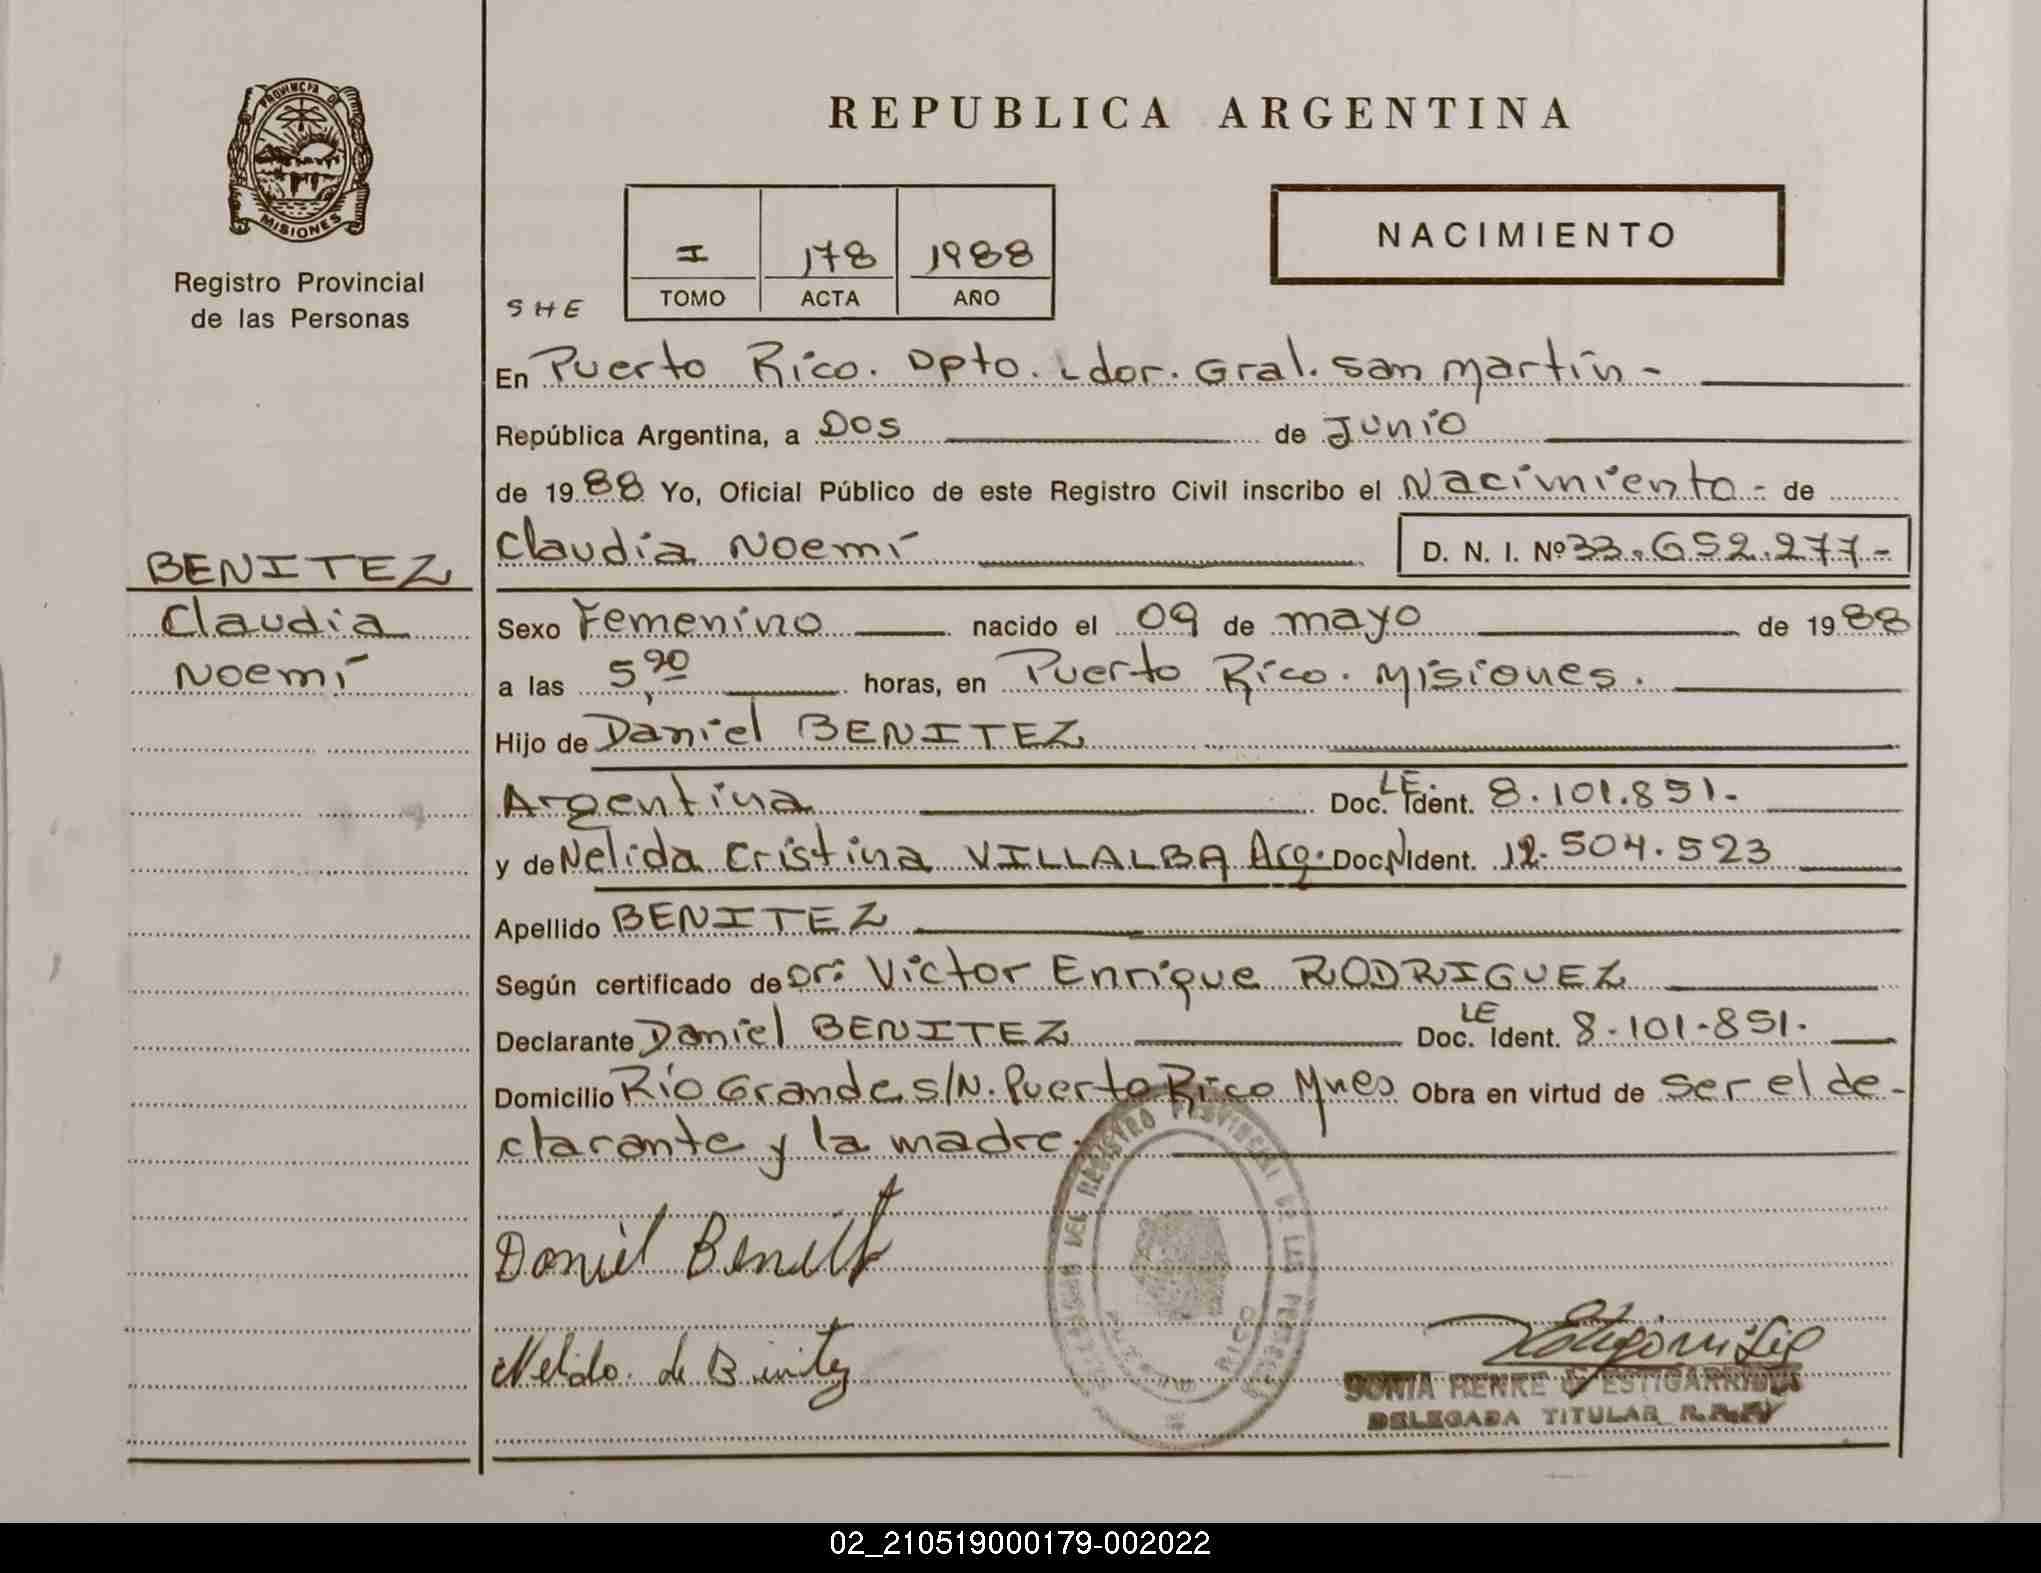 PROVINCIA DE
MISIONES
Registro Provincial
de las Personas
BENITEZ
Claudia
Noemí
REPUBLICA ARGENTINA
I 178 1988
TOMO ACTA AÑO
NACIMIENTO
SHE
En Puerto Rico. Dpto. Ldor. Gral. San Martín -
República Argentina, a Dos de Junio
de 1988 Yo, Oficial Público de este Registro Civil inscribo el Nacimiento - de
Claudia Noemí D. N. I. Nº 33.652.277-
Sexo Femenino nacido el 09 de mayo de 1988
a las 5, horas, en Puerto Rico. Misiones.
Hijo de Daniel BENITEZ
Argentina Doc. LE Ident. 8.101.851.-
y de Nelida Cristina VILLALBA Arg. Doc. N Ident. 12.504.523
Apellido BENITEZ
Según certificado de Dr: Victor Enrique RODRIGUEZ
Declarante Daniel BENITEZ Doc. LE Ident. 8.101.851.
Domicilio Río Grande s/N. Puerto Rico Mnes Obra en virtud de ser el de-
clarante y la madre.
Daniel Benitez
Nelida de Benitez
DELEGADA DEL REGISTRO PROVINCIAL DE LAS PERSONAS
PUERTO RICO
SONIA HENKE de ESTIGARRIBIA
DELEGADA TITULAR R.P.P.
02_210519000179-002022